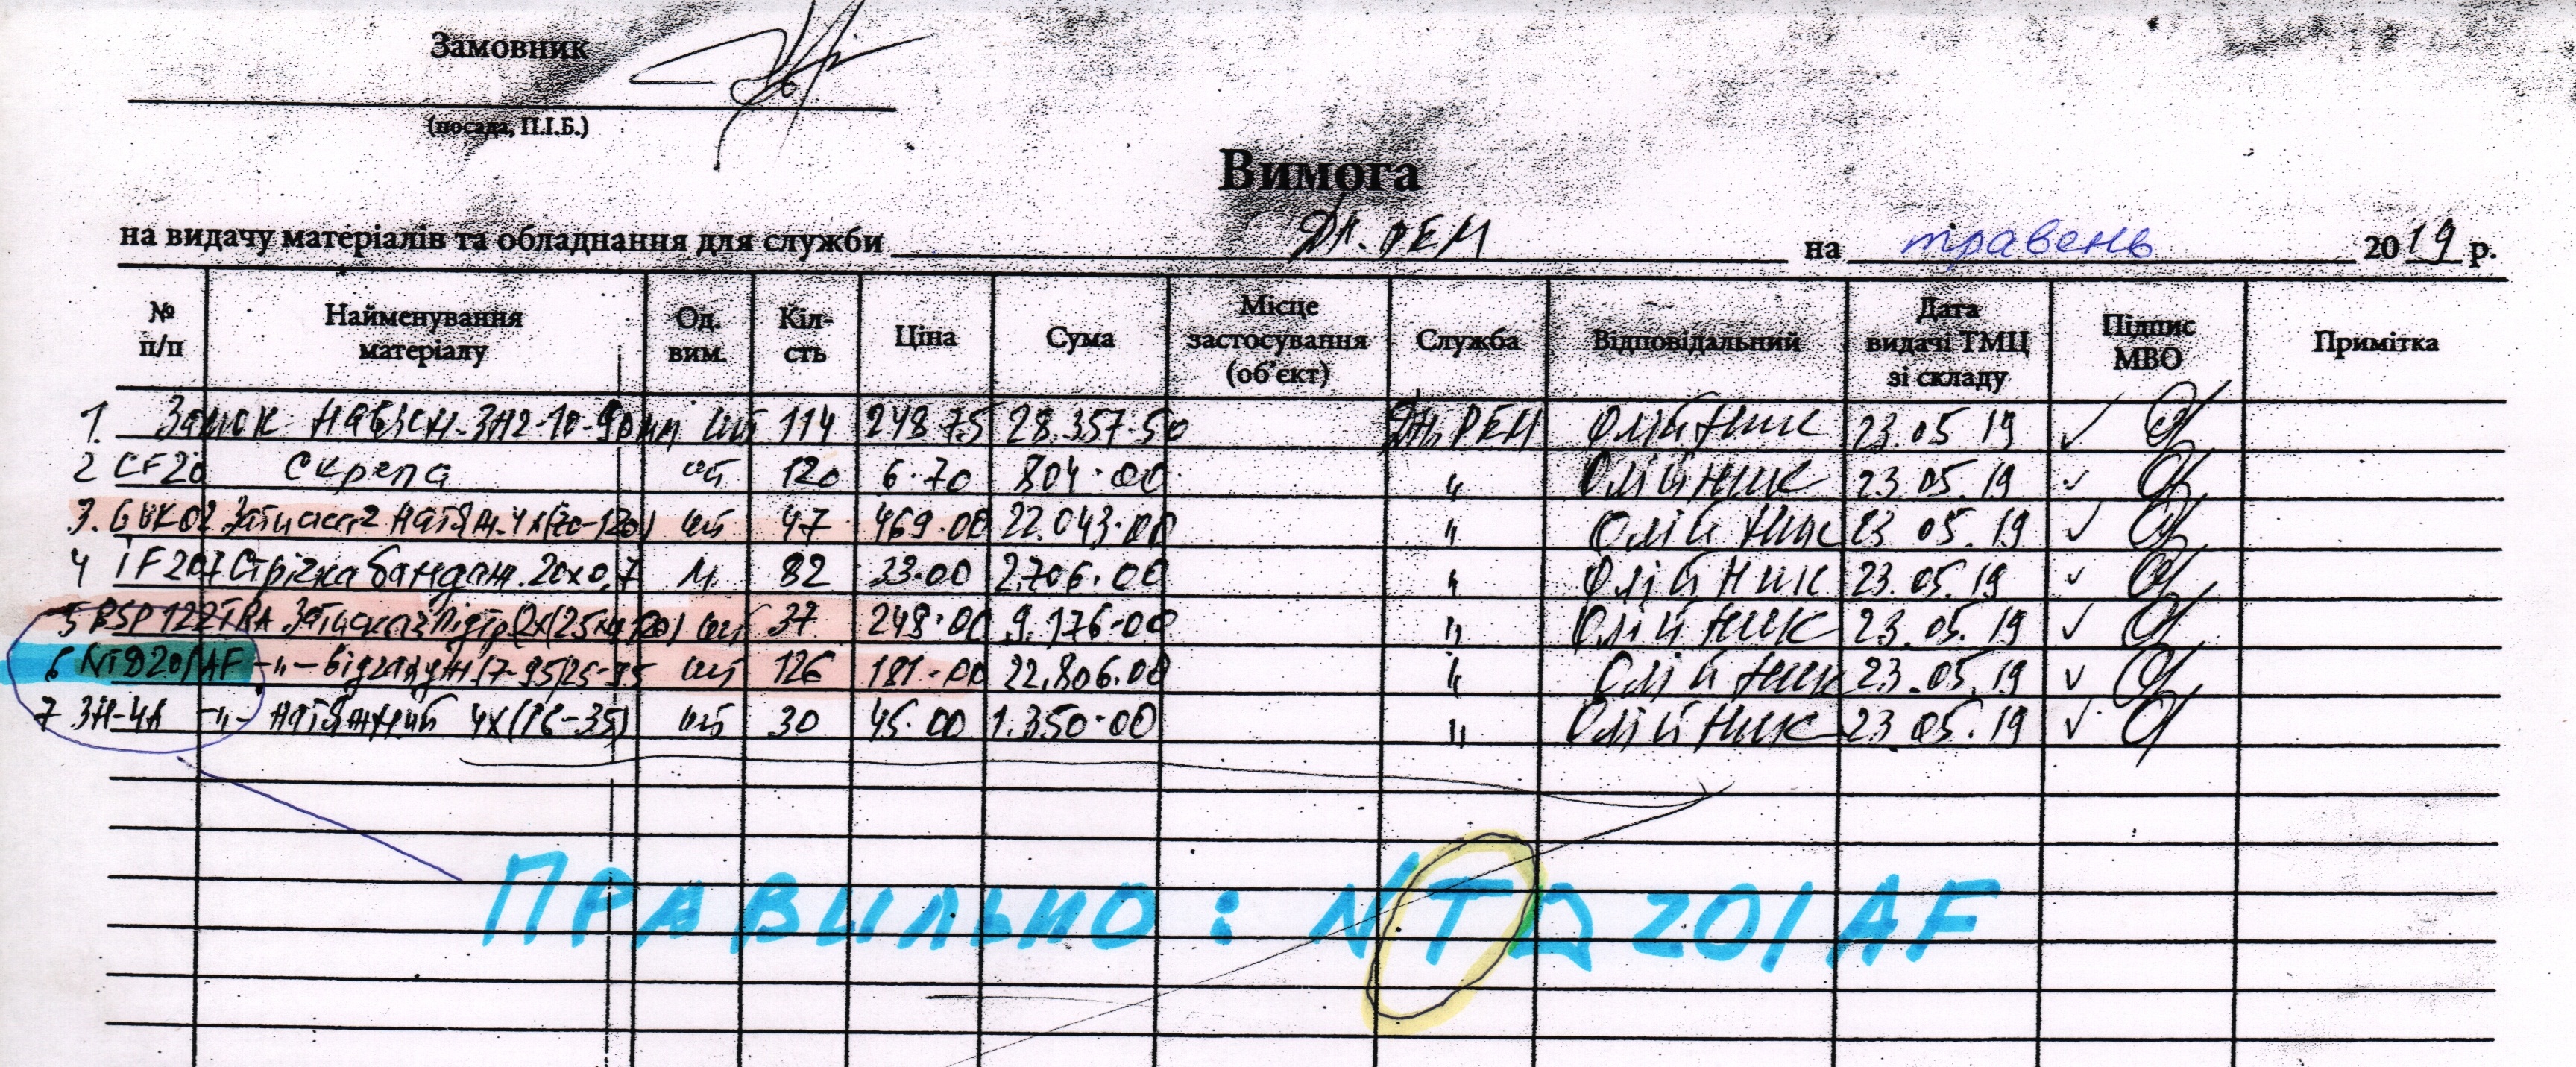 Замовник
(посада, П.І.Б.)
Вимога
на видачу матеріалів та обладнання для служби Дн. РЕМ на травень 2019 р.
№ п/п Найменування матеріалу Од. вим. Кіл-сть Ціна Сума Місце застосування (об'єкт) Служба Відповідальний Дата видачі ТМЦ зі складу Підпис МВО Примітка
1. Замок навісн. ЗН2-10-90мм шт 114 248.75 28.357.50 Дн. РЕМ Олійник 23.05 19 ✓
2 CF20 Скрепа шт 120 6.70 804.00 " Олійник 23.05.19 ✓
3. GUKo2 Затискач натяж. 4х(70-120) шт 47 469.00 22.043.00 " Олійник 23 05.19 ✓
4 iF207 Стрічка бандаж. 20х0,7 м. 82 33.00 2.706.00 " Олійник 23.05.19 ✓
5 шт 37 248.00 9.176.00 " Олійник 23.05.19 ✓
6 NTD201AF -"- відгалуж. шт 126 181.00 22.806.00 " Олійник 23.05.19 ✓
7 ЗН-4А -"- натяжний 4х(16-35) шт 30 45.00 1.350.00 " Олійник 23.05.19 ✓
ПРАВИЛЬНО: NTD201AF